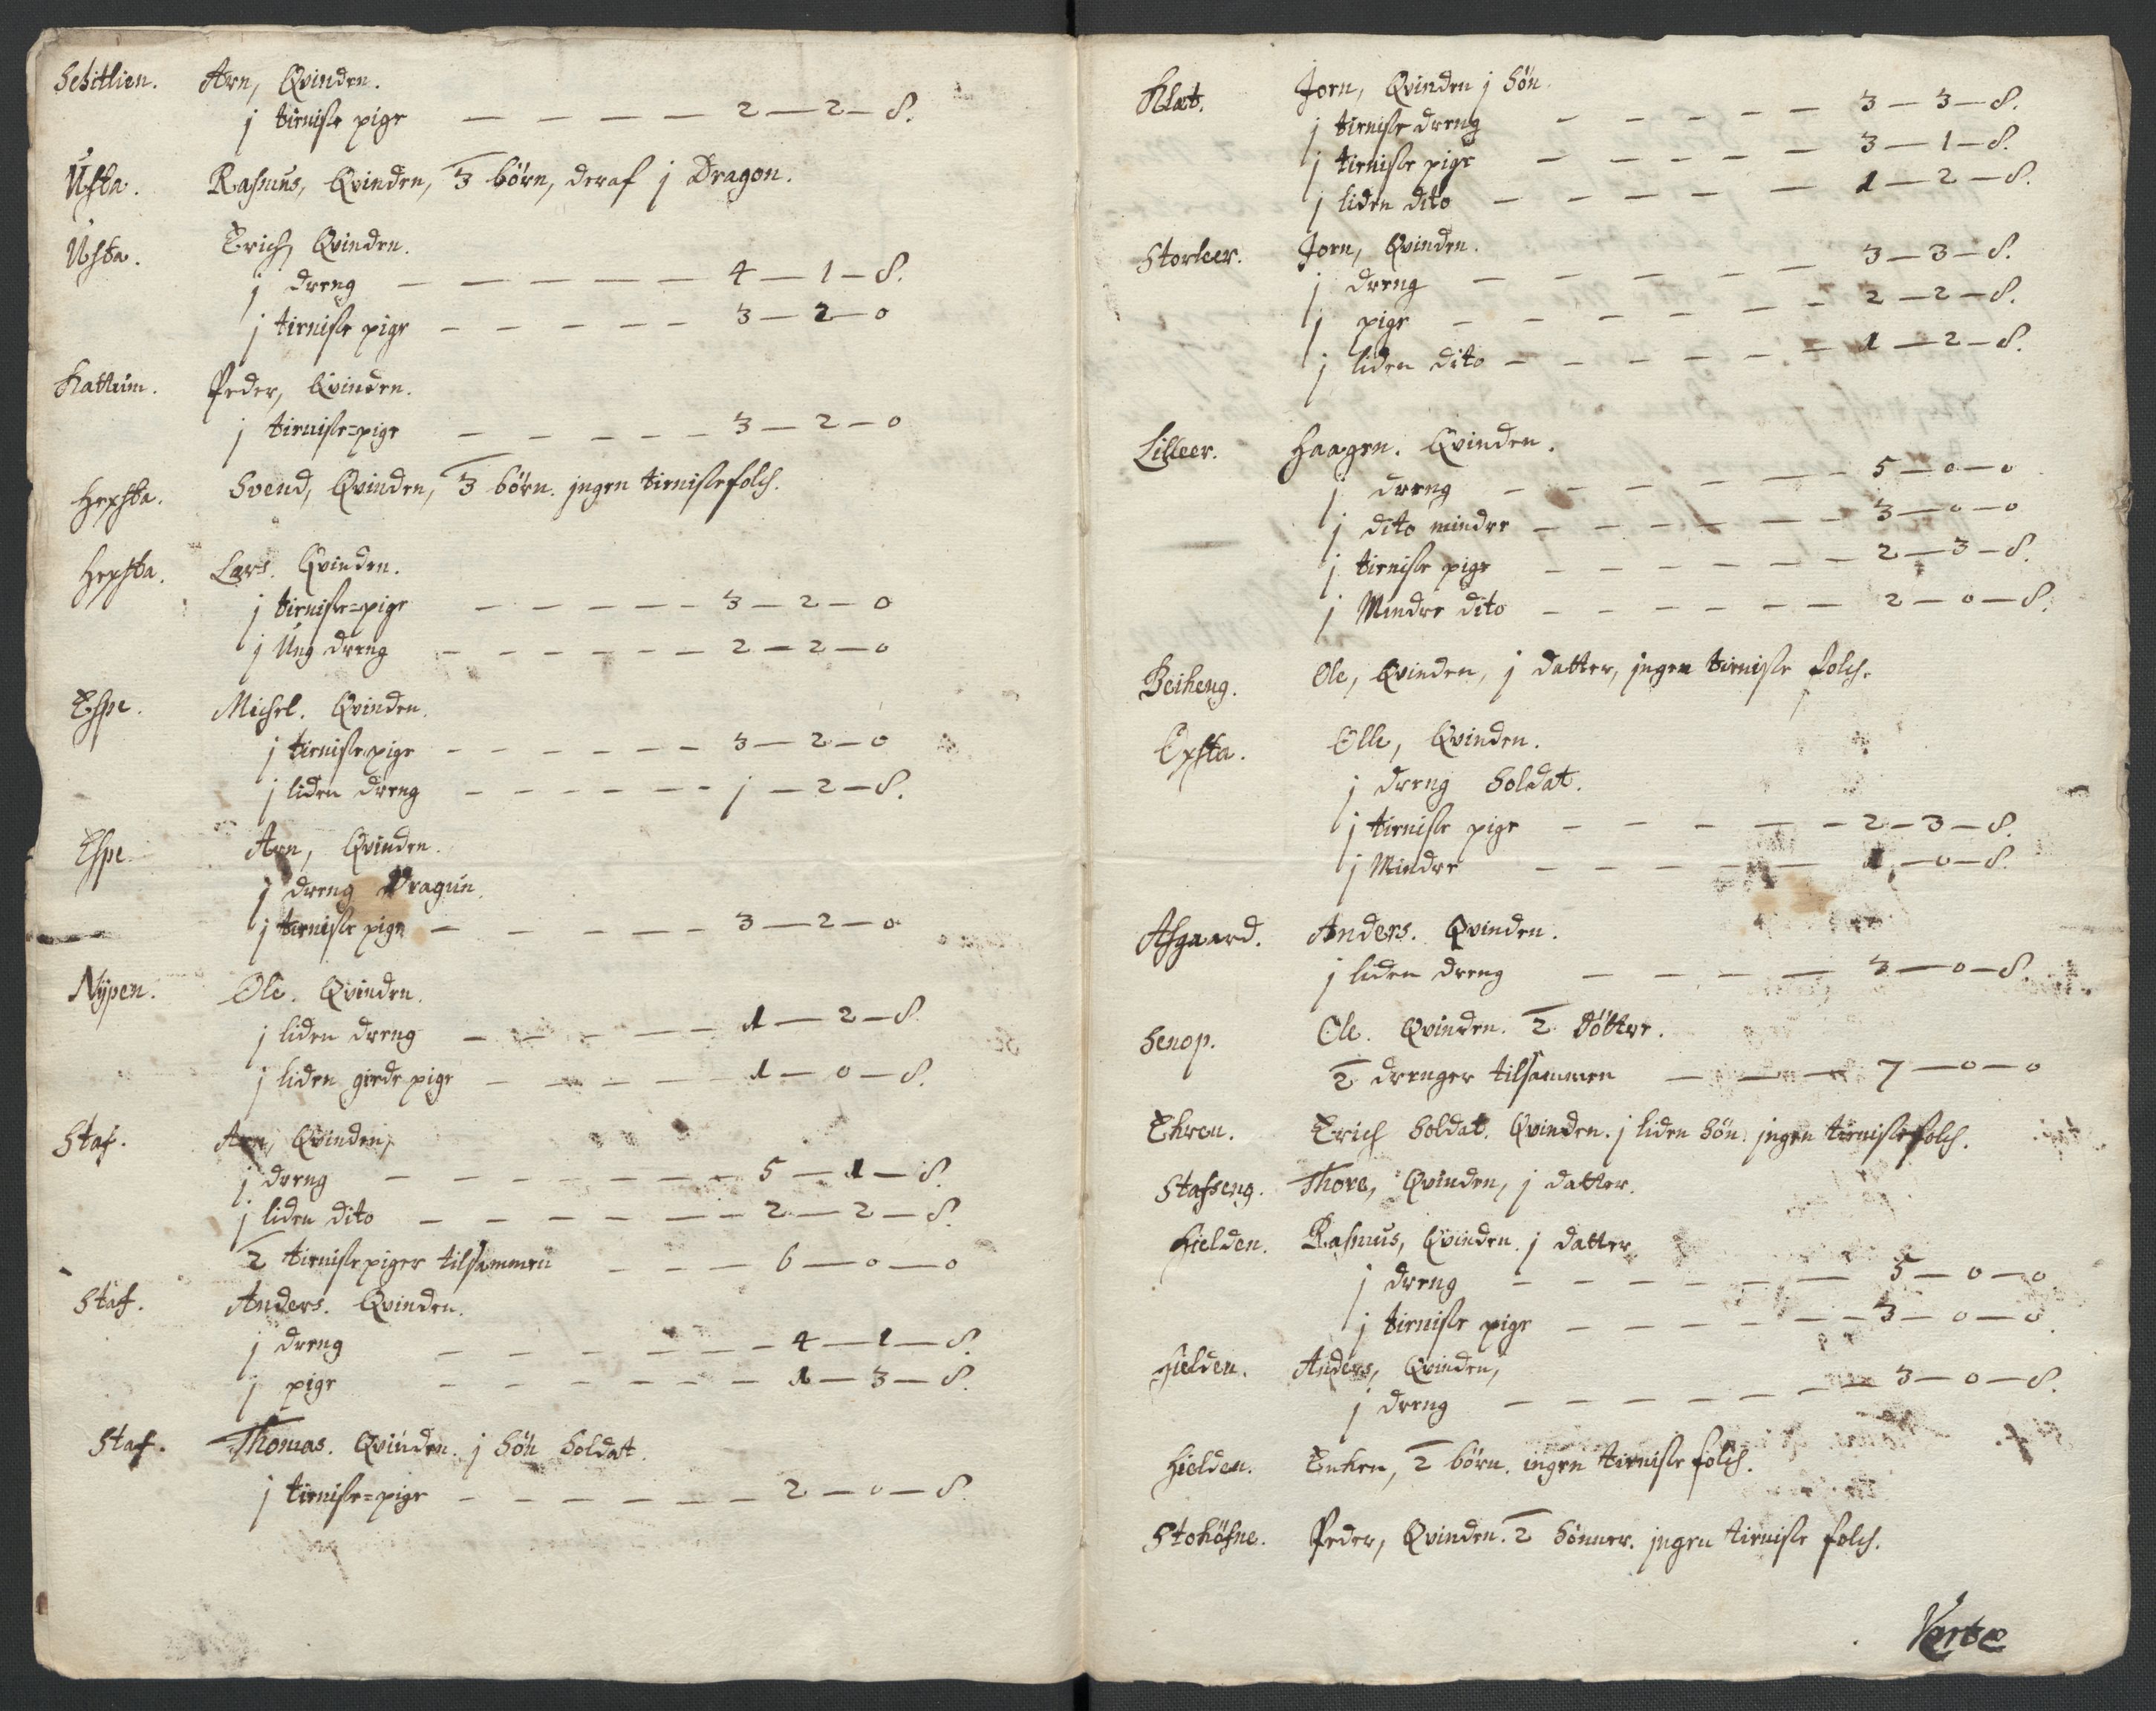 Schitlien. Arn, Qvinden.
j tieniste pige — — — — — 2 — 2 — 8.
Usta. Rasmus, Qvinden, 3 börn, deraf j Dragon.
Usta. Erich, Qvinden.
j dreng — — — — — — 4 — 1 — 8.
j tieniste pige — — — — — 3 — 2 — 0
Kattum. Peder, Qvinden.
j tieniste=pige — — — — — 3 — 2 — 0
Hexsta. Svend, Qvinden, 3 börn. jngen tienistefolch.
Hexsta. Lars. Qvinden.
j tieniste=pige — — — — — 3 — 2 — 0
j Ung dreng — — — — — — 2 — 2 — 0
Espe. Michel. Qvinden.
j tienistepige — — — — — 3 — 2 — 0
j liden dreng — — — — — j — 2 — 8.
Espe. Arn, Qvinden.
j dreng Dragun.
j tieniste pige — — — — — 3 — 2 — 0
Nÿpen. Ole. Qvinden.
j liden dreng — — — — — 1 — 2 — 8
j liden giede pige — — — — — 1 — 0 — 8.
Staf. Arn, Qvinden,
j dreng — — — — — — 5 — 1 — 8.
j liden dito — — — — — — 2 — 2 — 8.
2 tienistepiger tilsammen — — — 6 — 0 — 0
Staf. Anders. Qvinden.
j dreng — — — — — — 4 — 1 — 8.
j pige — — — — — — 1 — 3 — 8.
Staf. Thomas. Qvinden. j Sön Soldat.
j tieniste=pige — — — — — — 2 — 0 — 8.
Klæt. Jorn, Qvinden j Sön.
j tieniste dreng — — — — — 3 — 3 — 8.
j tieniste pige — — — — — 3 — 1 — 8.
j liden dito — — — — — 1 — 2 — 8.
Storleer. Jorn, Qvinden.
j dreng — — — — — 3 — 3 — 8.
j pige — — — — — — 2 — 2 — 8.
j liden dito — — — — — — 1 — 2 — 8.
Lilleer. Haagen. Qvinden.
j dreng — — — — — — 5 — 0 — 0
j dito mindre — — — — — — 3 — 0 — 0
j tieniste pige — — — — — 2 — 3 — 8.
j Mindre dito — — — — — — 2 — 0 — 8.
Beiheng. Ole, Qvinden, j datter, jngen tieniste folch.
Exsta. Olle, Qvinden.
j dreng Soldat.
j tieniste pige — — — — — 2 — 3 — 8.
j Mindre — — — — — 1 — 0 — 8.
Asgaard. Anders. Qvinden.
j liden dreng — — — — 3 — 0 — 8.
Senop. Ole. Qvinden. 2 döttre.
2 drenger tilsammen — — — 7 — 0 — 0
Ekren. Erich Soldat. Qvinden. j liden Sön. jngen tienistefolch.
Stafseng. Thore, Qvinden, j datter.
Hielden. Rasmus, Qvinden. j datter
j dreng — — — — — — 5 — 0 — 0
j tieniste pige — — — — — — 3 — 0 — 0.
Hielden. Anders, Qvinden,
j dreng — — — — — — 3 — 0 — 8.
Hielden. Enken, 2 börn. ingen tieniste folch.
Stohösne. Peder, Qvinden. 2 Sönner. jngen tieniste folch.
Verte